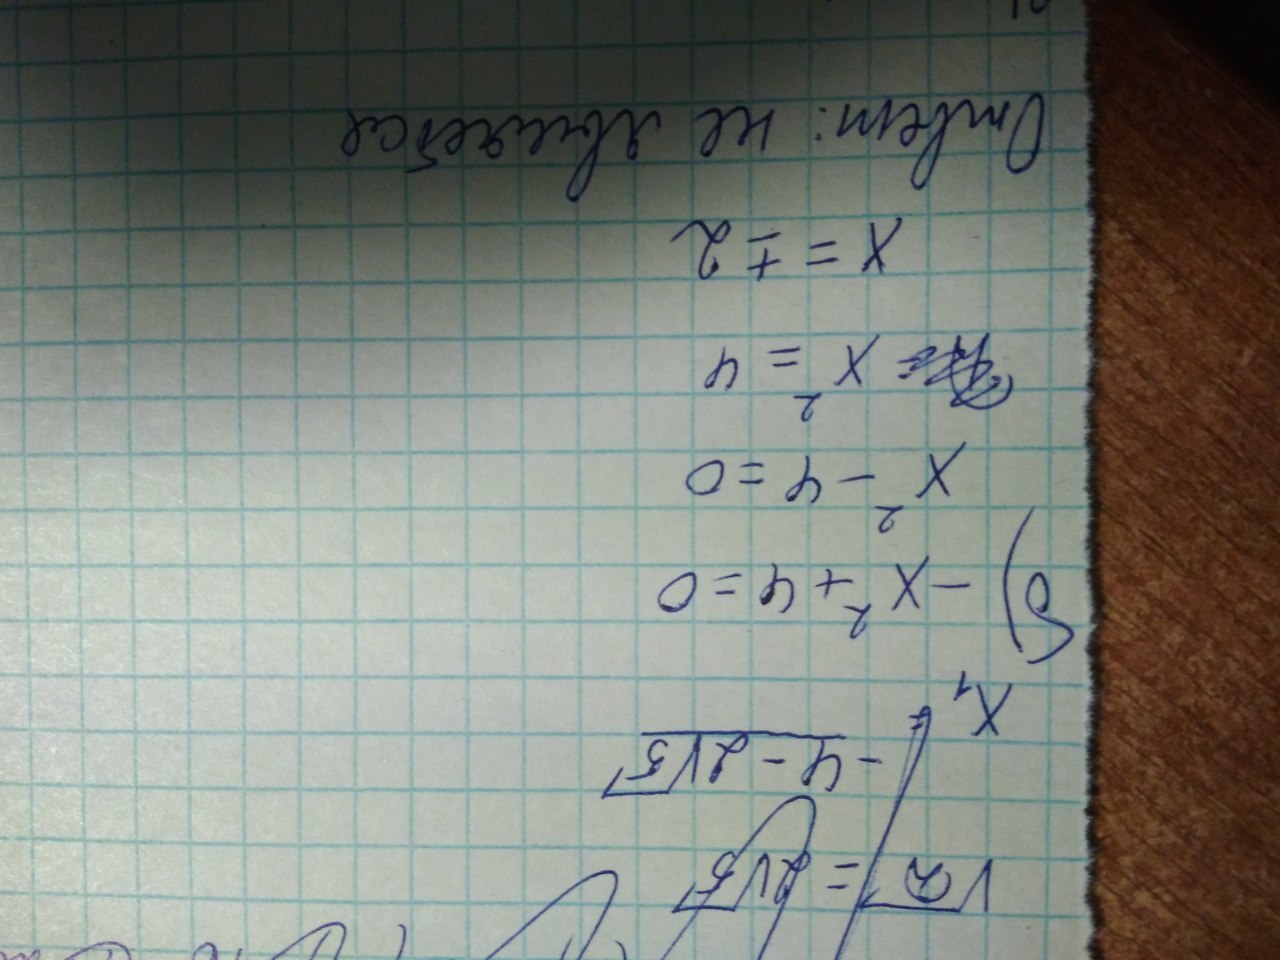 √2 = 2√5
X₁ = -4 - 2√5
б) -X² + 4 = 0
X² - 4 = 0
X² = 4
X = ± 2
Ответ: не является